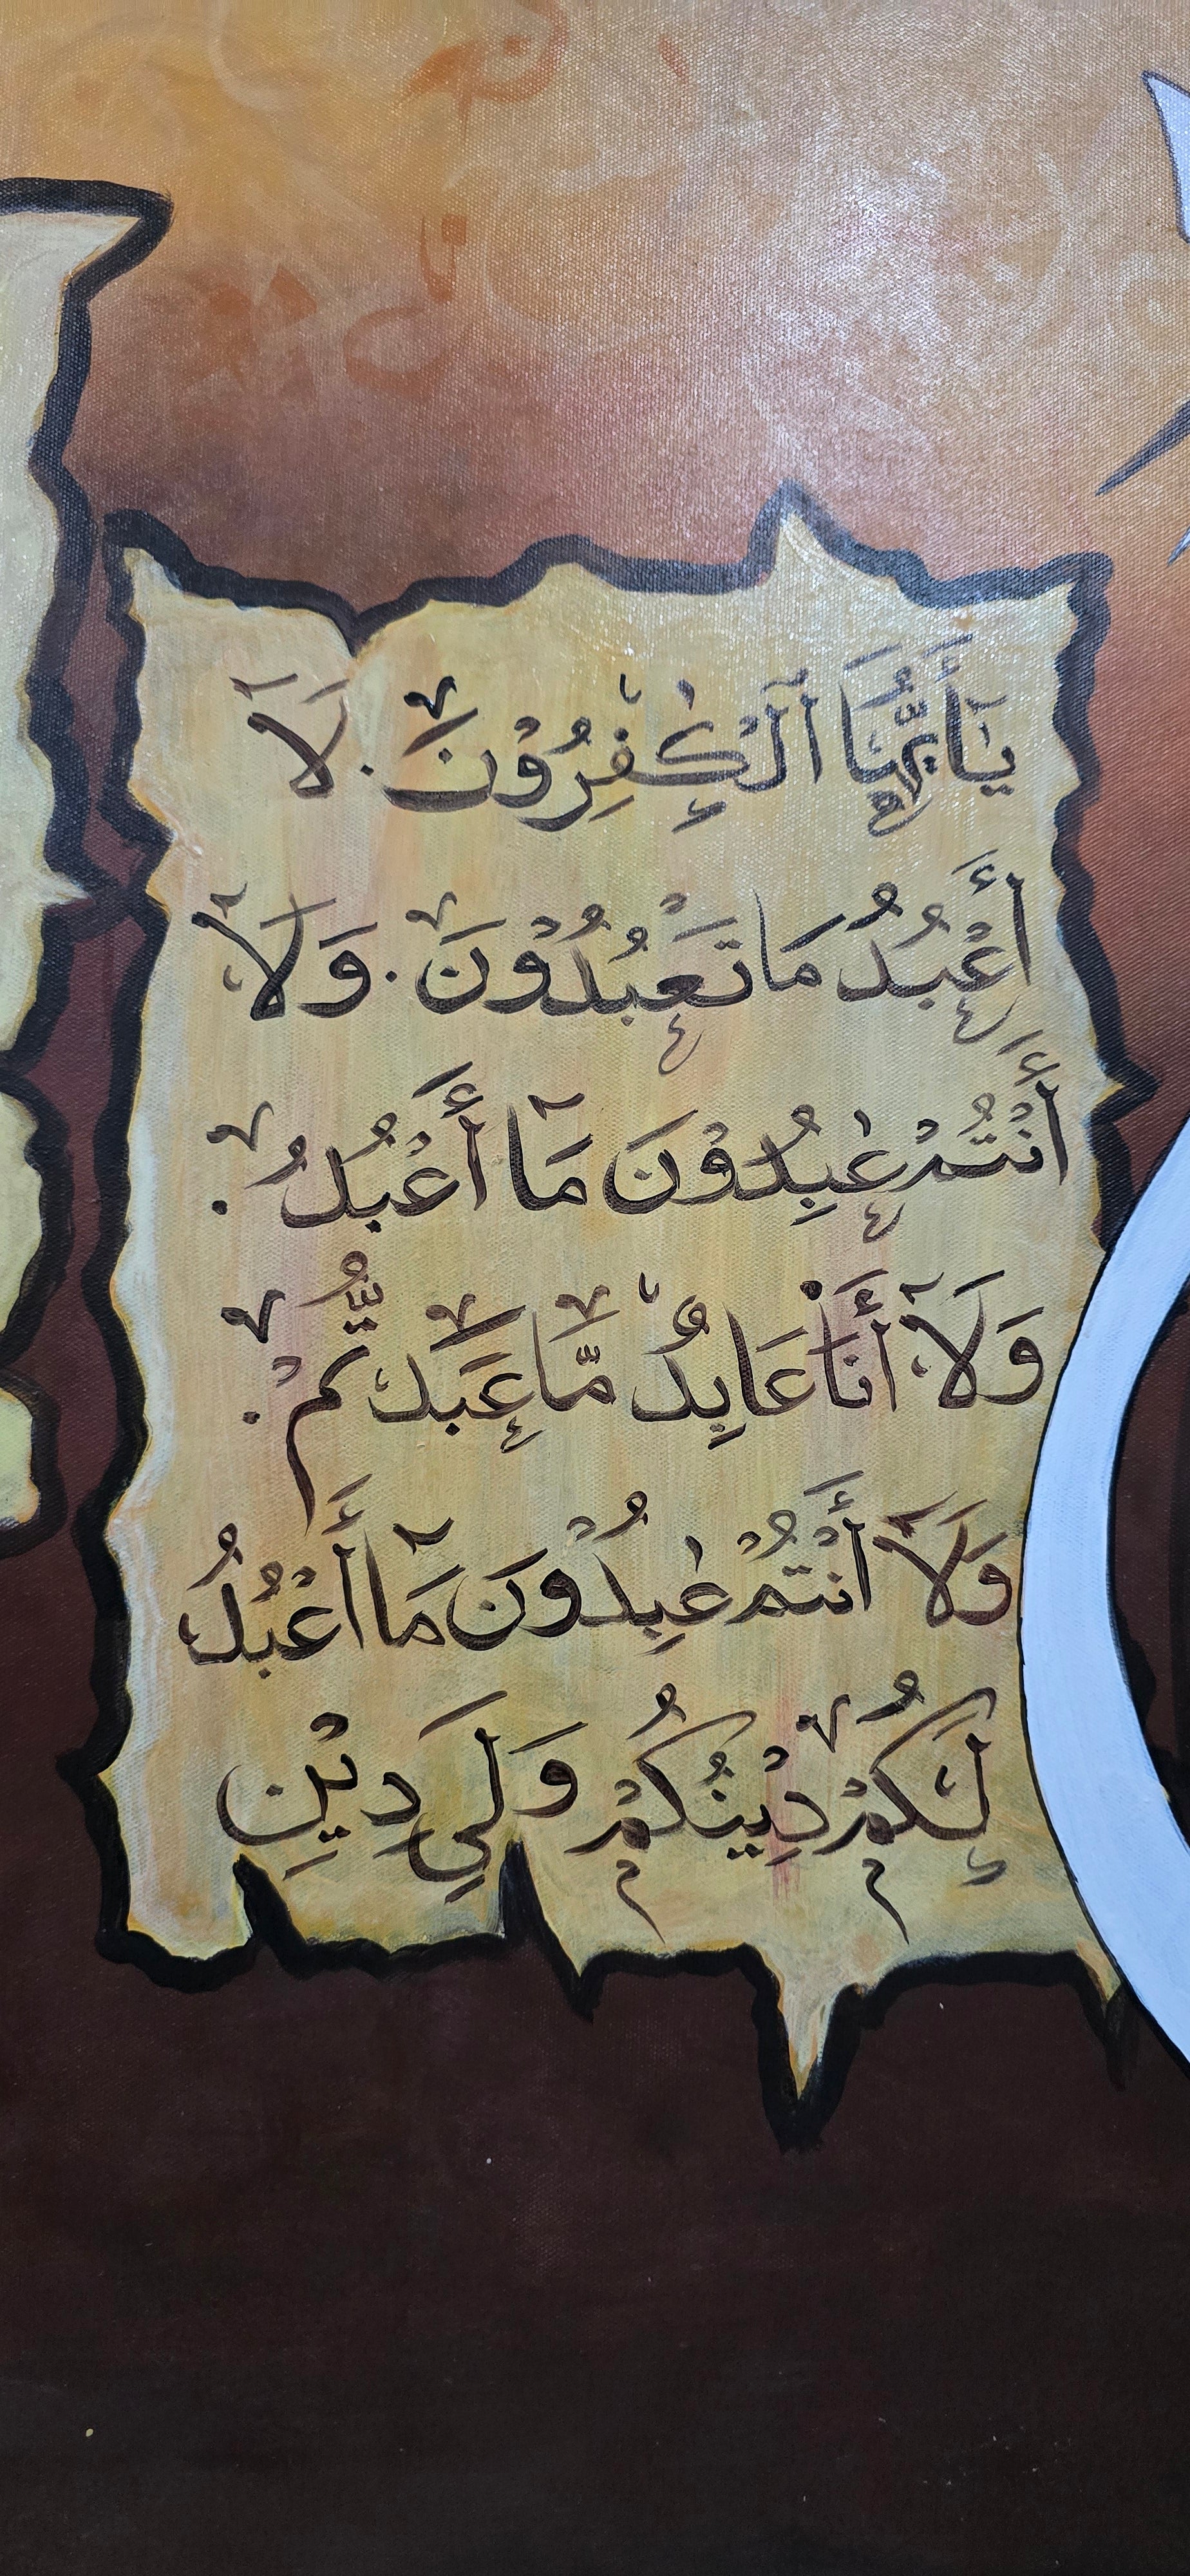 يَٰأَيُّهَا ٱلْكَٰفِرُوْنَ. لَآ
أَعْبُدُ مَا تَعْبُدُوْنَ. وَلَآ
أَنْتُمْ عٰبِدُوْنَ مَآ أَعْبُدُ.
وَلَآ أَنَا۠ عَابِدٌ مَّا عَبَدتُّمْ.
وَلَآ أَنْتُمْ عٰبِدُوْنَ مَآ أَعْبُدُ
لَكُمْ دِيْنُكُمْ وَلَيِ دِيْنِ